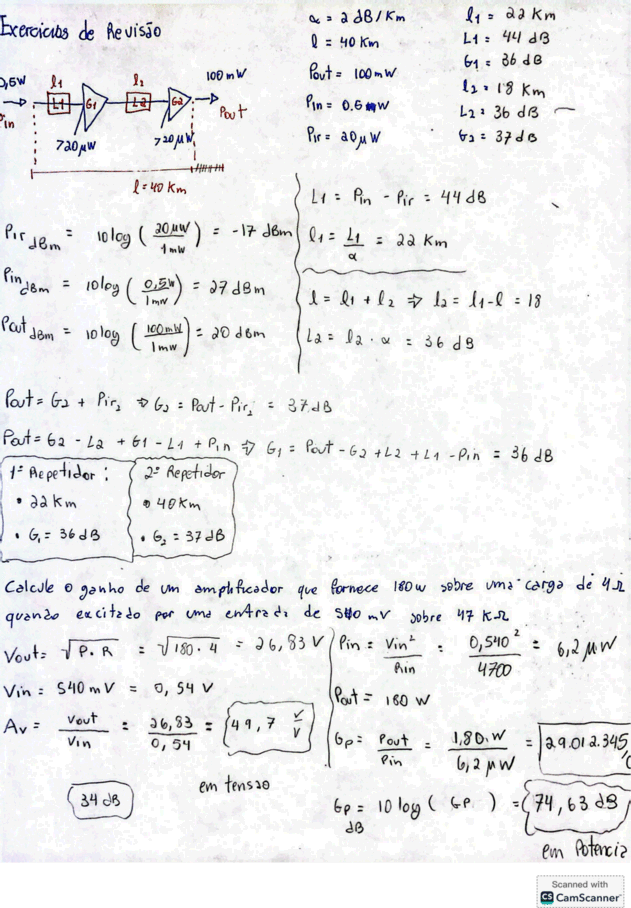 Exercícios de Revisão
α = 2 dB/Km
l = 40 Km
Pout = 100mW
Pin = 0.5 W
Pir = 20µW
l1 = 22 Km
L1 = 44 dB
G1 = 36 dB
l2 = 18 Km
L2 = 36 dB
G2 = 37dB
0,5W
Pin
l1
L1
G1
l2
L2
G2
100mW
Pout
>20µW
>20µW
l = 40 Km
Pir dBm = 10log (20µW/1mW) = -17 dBm
Pin dBm = 10log (0,5W/1mW) = 27 dBm
Pout dBm = 10log (100mW/1mW) = 20 dBm
L1 = Pin - Pir = 44 dB
l1 = L1/α = 22 Km
l = l1 + l2 ⇒ l2 = l1-l = 18
L2 = l2 · α = 36 dB
Pout = G2 + Pir2 ⇒ G2 = Pout - Pir2 = 37dB
Pout = G2 - L2 + G1 - L1 + Pin ⇒ G1 = Pout - G2 + L2 + L1 - Pin = 36 dB
1º Repetidor:
• 22Km
• G1 = 36 dB
2º Repetidor
• 40Km
• G2 = 37 dB
Calcule o ganho de um amplificador que fornece 180w sobre uma carga de 4Ω
quando excitado por uma entrada de 540 mV sobre 47 KΩ
Vout = √P.R = √180.4 = 26,83 V
Vin = 540mV = 0,54 V
Av = Vout/Vin = 26,83/0,54 = 49,7 V/V
34 dB
em tensão
Pin = Vin²/Rin = 0,540²/4700 = 6,2 µW
Pout = 180 W
Gp = Pout/Pin = 1,80.W/6,2 µW = 29.012.345,
Gp dB = 10log (Gp) = 74,63 dB
em Potencia
Scanned with
CS CamScanner